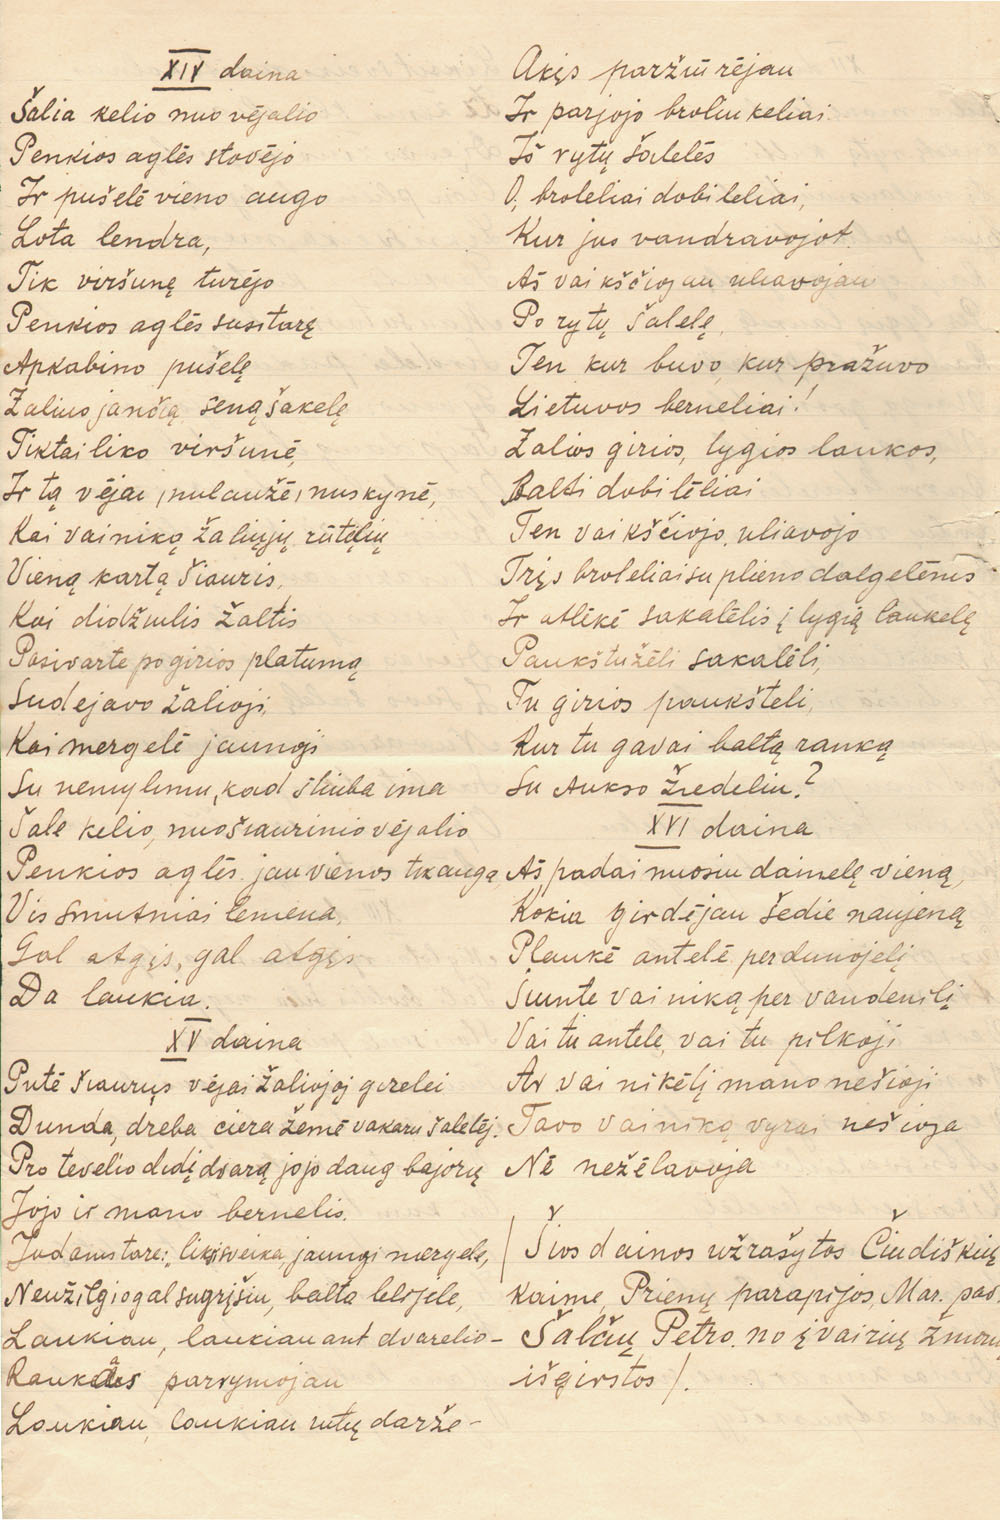 XIV daina
Šalia kelio nuo vėjalio
Penkios aglės stovėjo
Ir pušelė vieno augo
Lota lendra,
Tik viršunę turėjo
Penkios aglės susitarę
Apkabino pušelę
Žaliuojančią seną šakelę
Tiktai liko viršunė,
Ir tą vėjai, nulaužė, nuskynė,
Kai vainiką žaliųjų rūtelių
Vieną kartą šiauris,
Kai didžiulis žaltis
Pasivarte po girios platumą
Sudejavo žalioji,
Kai mergelė jaunoji
Su nemylimu, kad šliuba ima
Šale kelio, nuo šiaurinio vėjalio
Penkios aglės jau vienos tik auga
Vis smutniai lemena,
Gal atgįs, gal atgįs
Da laukia.
XV daina
Putė šiaurųs vėjai žaliojoj girelei
Dunda, dreba ciera žemė vakaru šalelėj.
Pro tevelio didį dvarą jojo daug bajorų
Jojo ir mano bernelis.
Jodams tare: liksveika, jaungi mergele,
Neužilgio gal sugrįšiu, balta lelijele,
Laukiau, laukiau ant dvarelio-
Rankas parrymojau
Laukiau, laukiau rutų darže-
Akįs paržiūrėjau
Ir parjojo broliukeliai
Iš rytų šalelės
O, broleliai dobileliai,
Kur jus vandravojot.
Aš vaikščiojau uliavojau
Po rytų šalelę,
Ten kur buvo, kur pražuvo
Lietuvos berneliai!
Žalios girios, lygios laukos,
Balti dobilėliai
Ten vaikščiojo, uliavojo
Trįs broleliai su plieno dalgelėmis
Ir atlėkė sakalėlis į lygią laukelę
Paukštužėli sakalėli,
Tu girios paukšteli,
Kur tu gavai baltą ranką
Su aukso žiedeliu?
XVI daina
Aš padainuosiu dainelę vieną,
Kokia girdėjau šedie naujeną
Plaukė antelė per dunojelį
Siunte vainiką per vandenilį
Vai tu antele, vai tu pilkoji
Ar vainikėlį mano nešioji
Tavo vainiką vyrai nešioja
Nė neželavoja
/Šios dainos užrašytos Čiudiškių
kaime, Prienų parapijos, Mar. pas.
Šalčių Petro. no įvairių žmonu
išgirstos/.